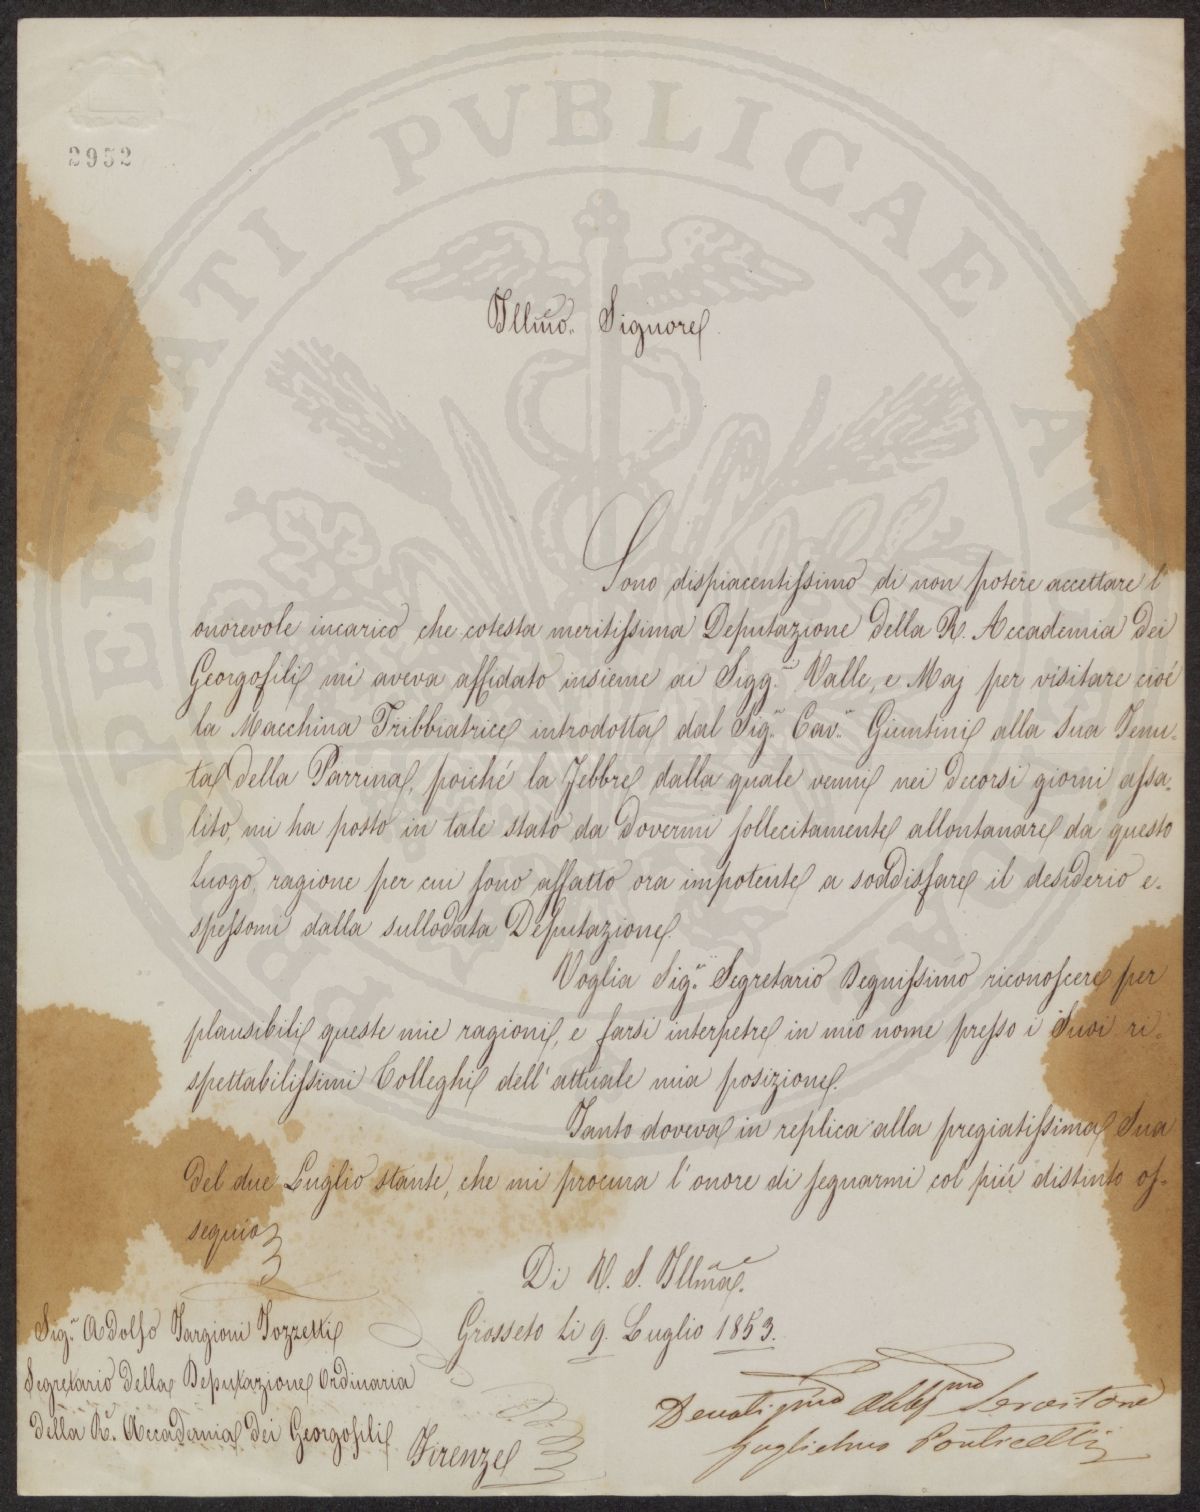 2952
PROSPERITATI PVBLICAE AVGENDAE
Illmo. Signore
Sono dispiacentissimo di non potere accettare l'
onorevole incarico che cotesta meritissima Deputazione della R. Accademia dei
Georgofili mi aveva affidato insieme ai Sigg.ri Valle, e Maj per visitare cioé
la Macchina Tribbiatrice introdotta dal Sig.r Cav.r Giuntini alla sua Tenu-
ta della Parrina, poiché la Febbre dalla quale venni nei decorsi giorni assa-
lito, mi ha posto in tale stato da dovermi sollecitamente allontanare da questo
luogo, ragione per cui sono affatto ora impotente a soddisfare il desiderio e-
spressomi dalla sullodata Deputazione.
Voglia Sig.r Segretario Degnissimo riconoscere per
plausibili queste mie ragioni, e farsi interpetre in mio nome presso i Suoi ri-
spettabilissimi Colleghi dell'attuale mia posizione.
Tanto doveva in replica alla pregiatissima Sua
del due Luglio stante, che mi procura l'onore di segnarmi col più distinto os-
sequio
Di V. S. Illma.
Grosseto li 9. Luglio 1853.
Sig.r Adolfo Targioni Tozzetti
Segretario della Deputazione Ordinaria
della R. Accademia dei Georgofili
Firenze
Devotissimo Obblmo Servitore
Guglielmo Ponticelli